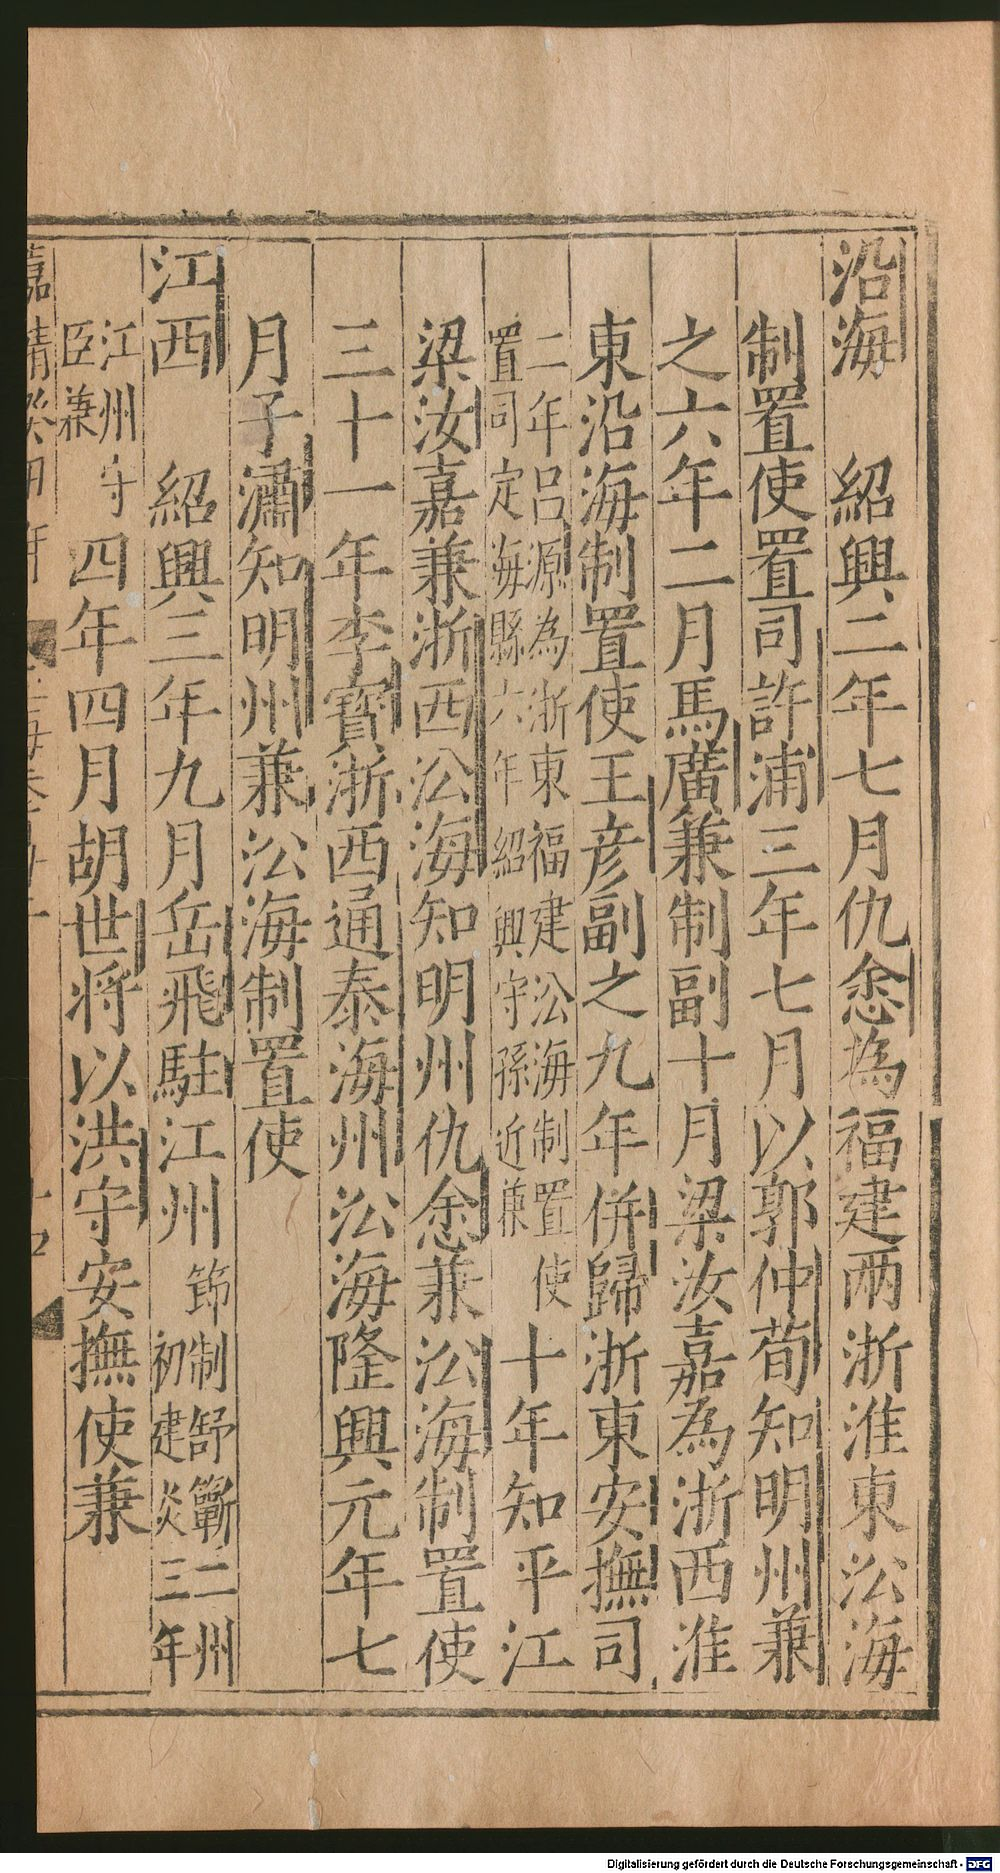 沿海　紹興二年七月仇悆爲福建兩浙淮東㳂海
制置使置司許浦三年七月以郭仲荀知明州兼
之六年二月馬廣兼制副十月梁汝嘉為浙西淮
東沿海制置使王彦副之九年併歸浙東安撫司
二年吕源為浙東福建㳂海制置使
置司定海縣六年紹興守孫近兼
十年知平江
梁汝嘉兼浙西㳂海知明州仇悆兼㳂海制置使
三十一年李寳浙西通泰海州㳂海隆興元年七
月子潚知明州兼㳂海制置使
江西　紹興三年九月岳飛駐江州
節制舒蘄二州
初建炎三年
江州守
臣兼
四年四月胡世将以洪守安撫使兼
Digitalisierung gefördert durch die Deutsche Forschungsgemeinschaft - DFG